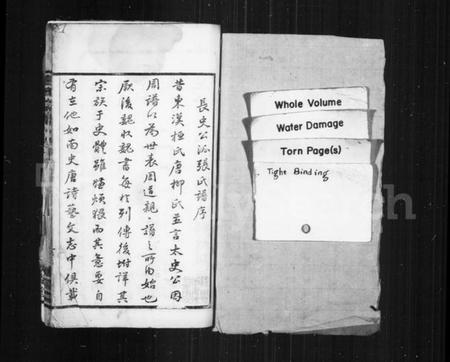 長史公派張氏譜序
昔東漢桓氏唐柳氏並言太史公因
周譜以為世表周道親〻譜之所由始也
厥後魏收魏書每於列傳後附詳其
宗族于史體雖嫌煩猥而其意要自
有在他如南史唐詩藝文志中俱載
Whole Volume
Water Damage
Torn Page(s)
Tight Binding